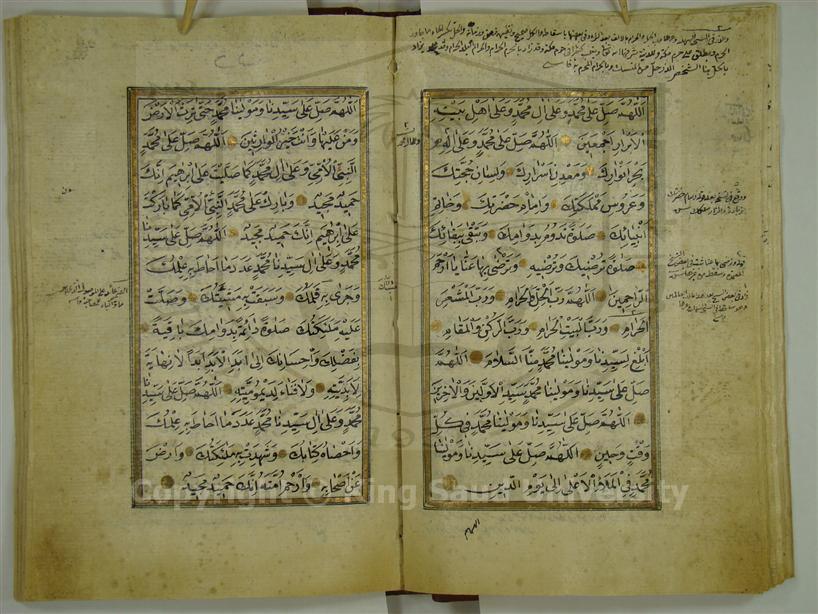 اللهم صل على محمد وعلى ال محمد وعلى اهل بيته
الابرار اجمعين اللهم صل على محمد وعلى اله
بحر انوارك ومعدن اسرارك ولسان حجتك
وعروس مملكتك وامام حضرتك وخاتم
انبيائك صلوة تدوم بدوامك وتبقى ببقائك
صلوة ترضيك وترضيه وترضى بها عنا يا ارحم
الراحمين اللهم رب الحل والحرام ورب المشعر
الحرام ورب البيت الحرام ورب الركن والمقام
ابلغ لسيدنا ومولينا محمد منا السلام اللهم
صل على سيدنا ومولينا محمد سيد الاولين والاخرين
اللهم صل على سيدنا ومولينا محمد في كل
وقت وحين اللهم صل على سيدنا ومولينا
محمد في الملاء الاعلى الى يوم الدين
اللهم
اللهم صل على سيدنا ومولينا محمد حتى ترث الارض
ومن عليها وانت خير الوارثين اللهم صل على محمد
النبي الامي وعلى ال محمد كما صليت على ابرهيم انك
حميد مجيد وبارك على محمد النبي الامي كما باركت
على ابرهيم انك حميد مجيد اللهم صل على سيدنا
محمد وعلى ال سيدنا محمد عدد ما احاط به علمك
وجرى به قلمك وسبقت به مشيتك وصلت
عليه ملئكتك صلوة دائمة بدوامك باقية
بفضلك واحسانك الى ابد الابد ابدا لا نهاية
لابديته ولا فناء لديموميته اللهم صل على سيدنا
محمد وعلى ال سيدنا محمد عدد ما احاط به علمك
واحصاه كتابك وشهدت به ملئكتك وارض
عن اصحابه وارحم امته انك حميد مجيد
Copyright © King Saud University